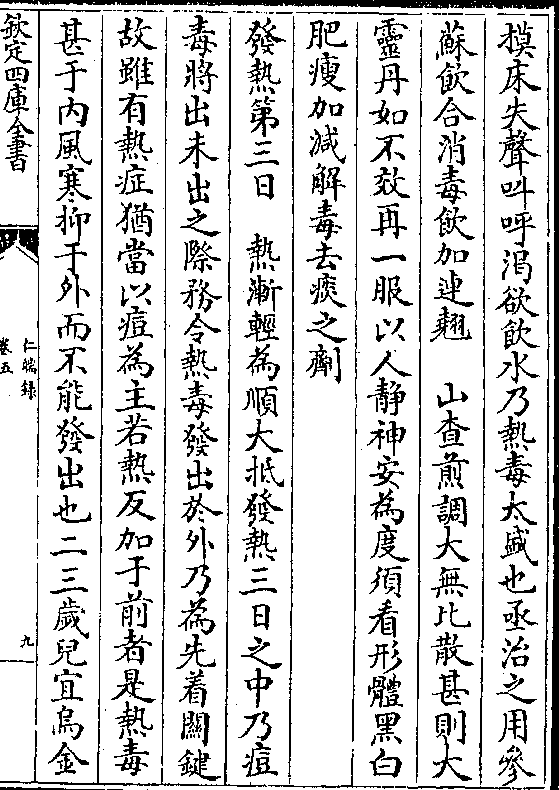 摸床失聲叫呼渴欲飲水乃熱毒太盛也亟治之用參
蘇飲合消毒飲加連翹　山查煎調大無比散甚則大
靈丹如不效再一服以人靜神安為度須看形體黑白
肥瘦加減解毒去痰之劑
發熱第三日　熱漸輕為順大抵發熱三日之中乃痘
毒將出未出之際務令熱毒發出於外乃為先着關鍵
故雖有熱症猶當以痘為主若熱反加于前者是熱毒
甚于内風寒抑于外而不能發出也二三歲兒宜烏金
欽定四庫全書
仁端錄
卷五
九